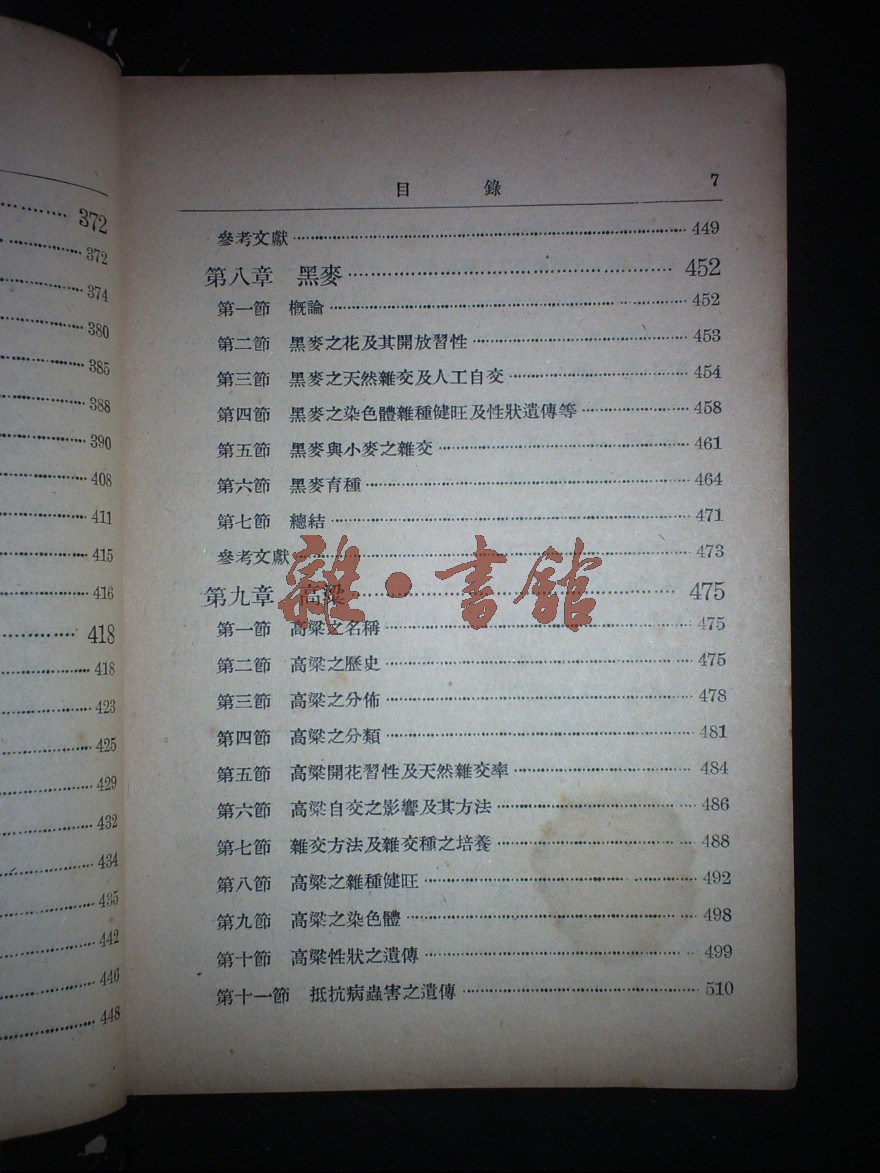 372
372
374
380
385
388
390
408
411
415
416
418
418
423
425
429
432
434
435
442
446
448
目 錄 7
參考文獻 449
第八章 黑麥 452
第一節 概論 452
第二節 黑麥之花及其開放習性 453
第三節 黑麥之天然雜交及人工自交 454
第四節 黑麥之染色體雜種健旺及性狀遺傳等 458
第五節 黑麥與小麥之雜交 461
第六節 黑麥育種 464
第七節 總結 471
參考文獻 473
第九章 高粱 475
第一節 高粱之名稱 475
第二節 高粱之歷史 475
第三節 高粱之分佈 478
第四節 高粱之分類 481
第五節 高粱開花習性及天然雜交率 484
第六節 高粱自交之影響及其方法 486
第七節 雜交方法及雜交種之培養 488
第八節 高粱之雜種健旺 492
第九節 高粱之染色體 498
第十節 高粱性狀之遺傳 499
第十一節 抵抗病蟲害之遺傳 510
雜·書館